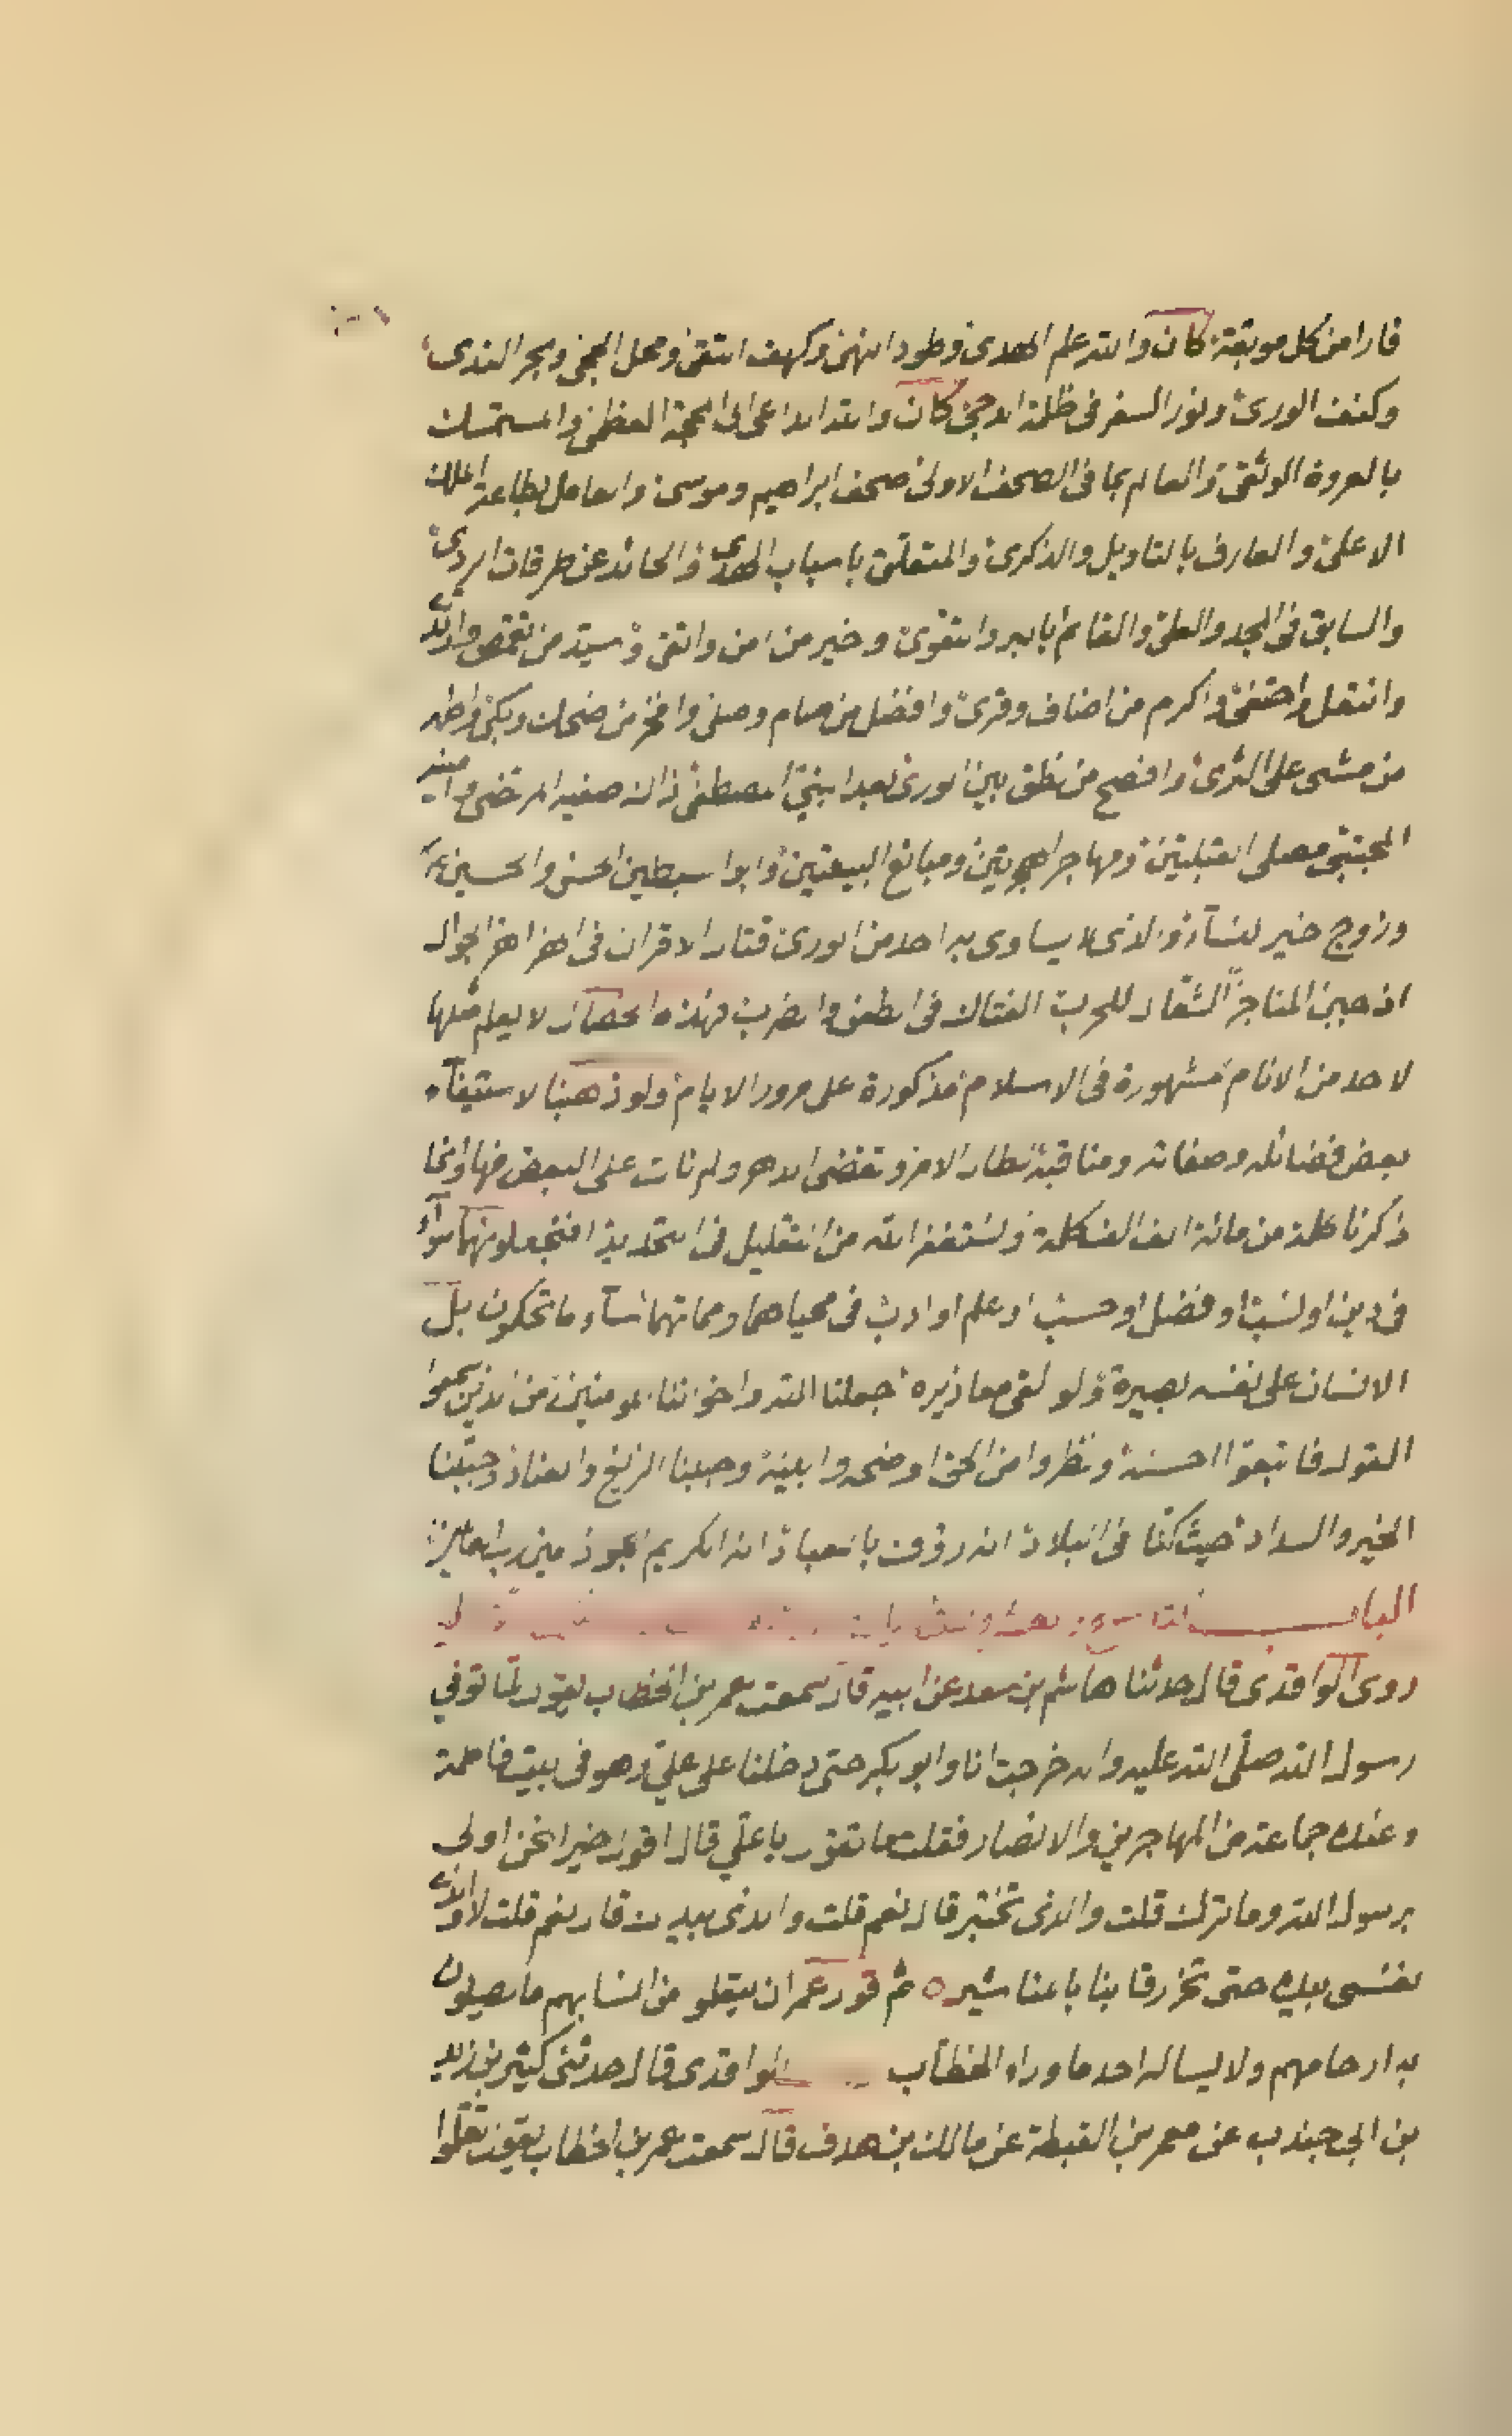 فارا من كل موبقة كان والله علم الهدى وطود النهى وكهف التقى ومحل الحجى وبحر الندى
وكنف الورى ونور السفر فى ظلمة الدجى كان والله الداعى الى المحجة العظمى والمستمسك
بالعروة الوثقى والعالم بما فى الصحف الاولى صحف ابراهيم وموسى والعامل بطاعة الملك
الاعلى والعارف بالتاويل والذكرى والمتعلق باسباب الهدى والحائد عن طرقات الردى
والسابق فى المجد والعلى والقائم بالبر والتقوى وخير من امن واتقى وسيد من تقمص وارتدى
وانتعل واحتفى واكرم من اضاف وقرى وافضل من صام وصلى وافخر من ضحك وبكى واطهر
من مشى على الثرى وافصح من نطق بين الورى بعد النبى المصطفى ذاك صفيه المرتضى وامينه
المجتبى مصلى القبلتين ومهاجر الهجرتين ومبايع البيعتين وابو السبطين الحسن والحسين
وزوج خير النسآء والذى لا يساوى به احد من الورى قتال الاقران فى الهزاهز الجوال
اذ حين المناجز الشقاد للحرب الفتاك فى الطعن والضرب فهذه الخصال لا يعلم مثلها
لاحد من الانام مشهورة فى الاسلام مذكورة على مرور الايام ولو ذهبنا لاستيفآء
بعض فضائله وصفاته ومناقبه لطال الامر وتقضى الدهر ولم نات على البعض منها وانما
ذكرنا كلمة من مائة الف الف كلمة ونستغفر الله من التقليل فى التحديد افتجعلونهما سوآء
فى دين او نسب او فضل او حسب او علم او ادب فى محياهما ومماتهما سآء ما تحكمون بل
الانسان على نفسه بصيرة ولو لقى معاذيره جعلنا الله واخواننا المومنين من الذين سمعوا
القول فاتبعوا احسنه ونظروا من الحق اوضحه وابينه وجنبنا الزيغ والعناد وحببنا
الخير والسداد حيث كنا فى البلاد انه رؤف بالعباد انه الكريم الجواد مين رب العالمين
البا
روى الواقدى قال حدثنا هاشم بن سعد عن ابيه قال سمعت عمر بن الخطاب يقول لما توفى
رسول الله صلى الله عليه واله خرجت انا وابو بكر حتى دخلنا على على وهو فى بيت فاطمة
وعنده جماعة من المهاجرين والانصار فقلت ما تقول يا على قال اقول خيرا نحن اولى
برسول الله وما ترك قلت والذى بخيبر قال نعم قلت والذى بفدك قال نعم قلت لا والذى
نفسى بيده حتى تحز رقابنا بالمناشير ثم قول عمر ان تعلمو من انسابهم ما يصلون
به ارحامهم ولا يساله احد ما وراء الخطاب الواقدى قال حدثنى كثير بن زيد
بن ابى جندب عن معمر بن القبطة عن مالك بن هدف قال سمعت عمر بن الخطاب يقول تعلموا